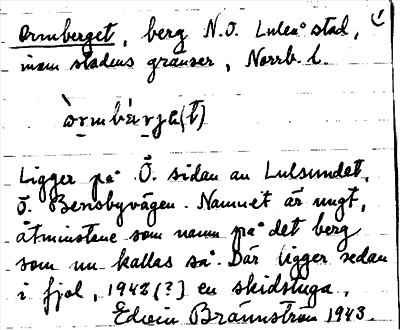 Ormberget, berg N.O. Luleå stad,
inom stadens gränser, Norrb. l.
òrmbàrjə(t)
Ligger på Ö. sidan av Lulsundet,
Ö. Bensbyvägen. Namnet är ungt,
åtminstone som namn på det berg
som nu kallas så. Där ligger sedan
i fjol, 1942(?) en skidstuga.
Edvin Brännström 1943.